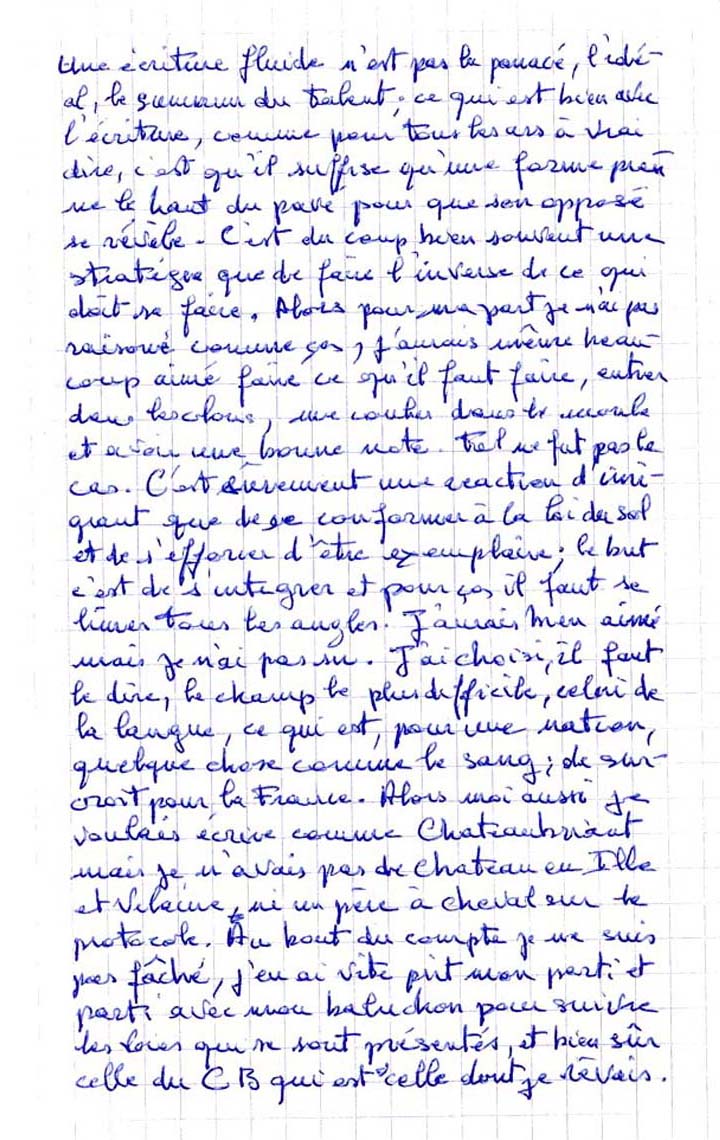 Une écriture fluide n'est pas la panacé, l'idé-
al, le summum du talent ; ce qui est bien avec
l'écriture, comme pour tous les ars à vrai
dire, c'est qu'il suffise qu'une forme pren
ne le haut du pavé pour que son opposé
se révèle. C'est du coup bien souvent une
stratégie que de faire l'inverse de ce qui
doit se faire. Alors pour ma part je n'ai pas
raisonné comme ças, j'aurais même beau-
coup aimé faire ce qu'il faut faire, entrer
dans les clous, me couler dans le moule
et avoir une bonne note. Tel ne fut pas le
cas. C'est sûrement une réaction d'imi-
grant que de se conformer à la loi du sol
et de s'efforcer d'être exemplaire ; le but
c'est de s'intégrer et pour ças il faut se
limer tous les angles. J'aurais bien aimé
mais je n'ai pas su. J'ai choisi, il faut
le dire, le champ le plus difficile, celui de
la langue, ce qui est, pour une nation,
quelque chose comme le sang ; de sur-
croit pour la France. Alors moi aussi je
voulais écrire comme Chateaubriant
mais je n'avais pas de chateau en Ille
et Vilaine, ni un père à cheval sur le
protocole. Au bout du compte je me suis
pas fâché, j'en ai vite prit mon parti et
parti avec mon baluchon pour suivre
les voies qui se sont présentés, et bien sûr
celle du CB qui est celle dont je rêvais.